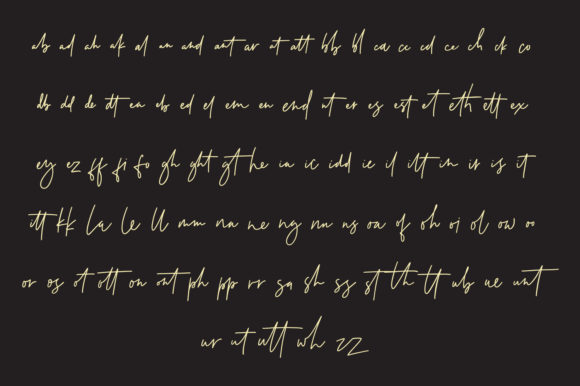 ab ad ah ak al an and ant ar at att bb bl ca cc cd ce ch ck co
db dd de dt ea eb ed el em en end nt er es est et eth ett ex
ey ez ff fi fo gh ght gt he ia ic idd ie il ilt in ir is it
itt kk la le ll mm na ne ng nn ns oa of oh oi ol ow oo
or os ot ott on ont ph pp rr sa sh ss st th tt ub ue unt
ur ut utt wh zz